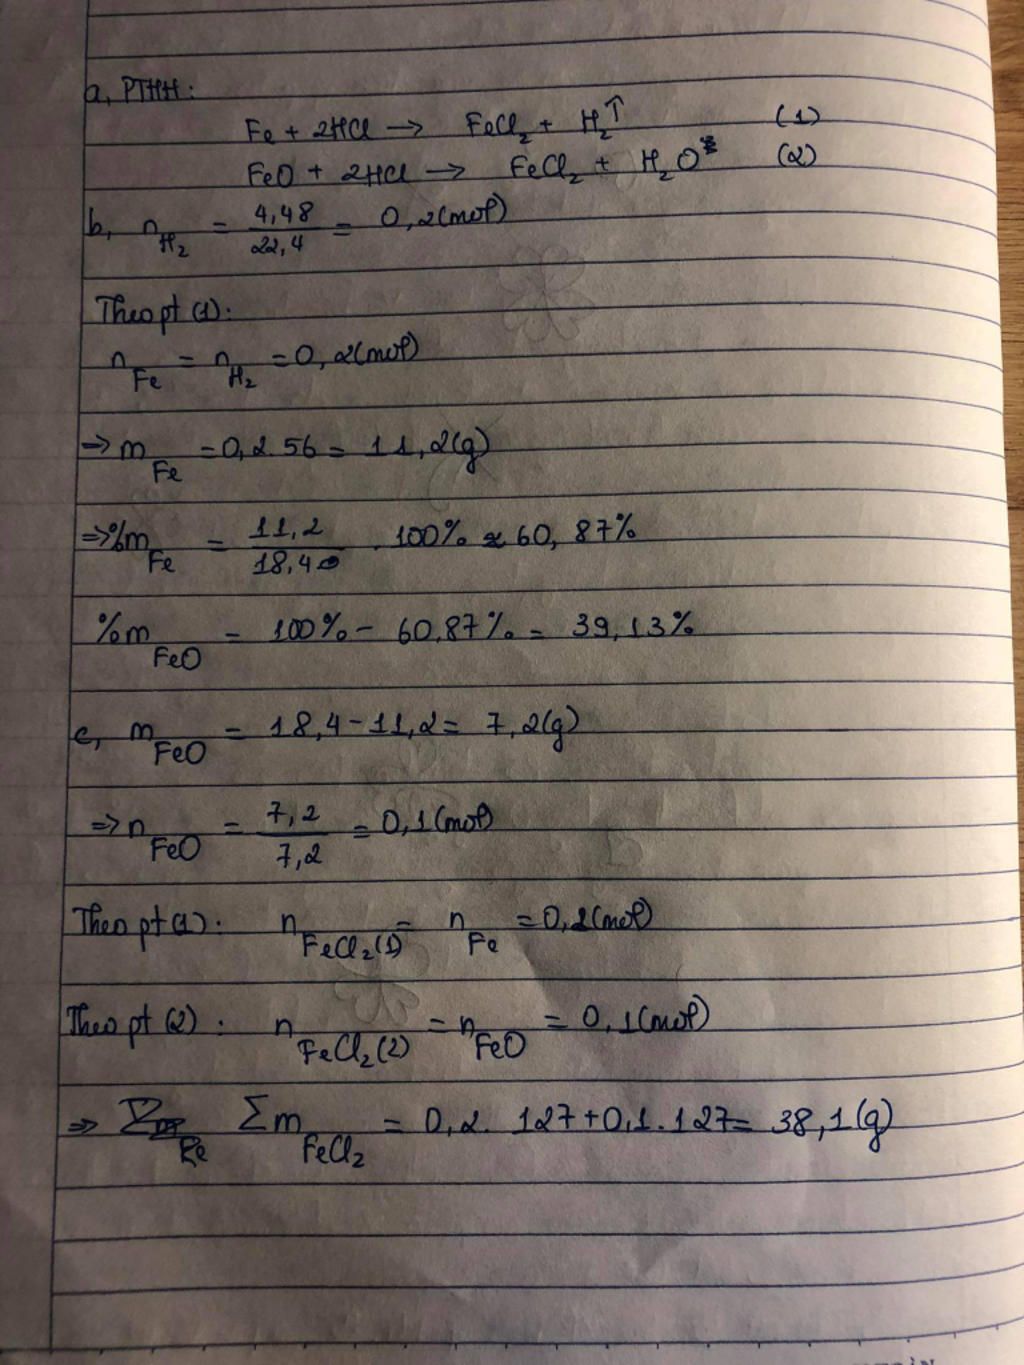 a, PTHH:
Fe + 2HCl → FeCl₂ + H₂↑ (1)
FeO + 2HCl → FeCl₂ + H₂O (2)
b, n_H₂ = 4,48/22,4 = 0,2(mol)
Theo pt (1):
n_Fe = n_H₂ = 0,2(mol)
⇒ m_Fe = 0,2.56 = 11,2(g)
⇒ %m_Fe = 11,2/18,4 . 100% ≈ 60,87%
%m_FeO = 100% - 60,87% = 39,13%
c, m_FeO = 18,4 - 11,2 = 7,2(g)
⇒ n_FeO = 7,2/7,2 = 0,1(mol)
Theo pt (1): n_FeCl₂(1) = n_Fe = 0,2(mol)
Theo pt (2): n_FeCl₂(2) = n_FeO = 0,1(mol)
⇒ Σm_FeCl₂ = 0,2. 127 + 0,1.127 = 38,1(g)